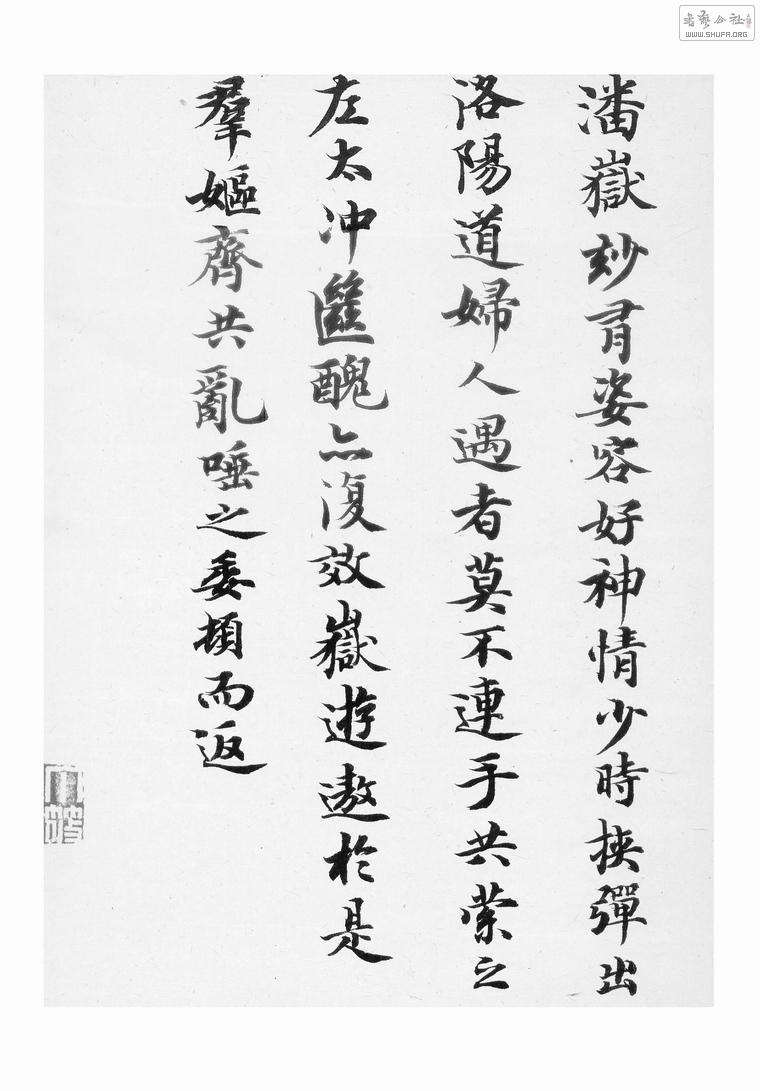 潘嶽妙有姿容好神情少時挾彈出
洛陽道婦人遇者莫不連手共縈之
左太冲絕醜亦復效嶽遊遨於是
羣嫗齊共亂唾之委頓而返
書藝公社
WWW.SHUFA.ORG